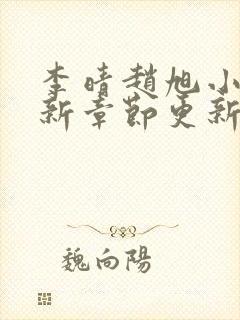 李晴趙旭小
新章節更新
魏向陽